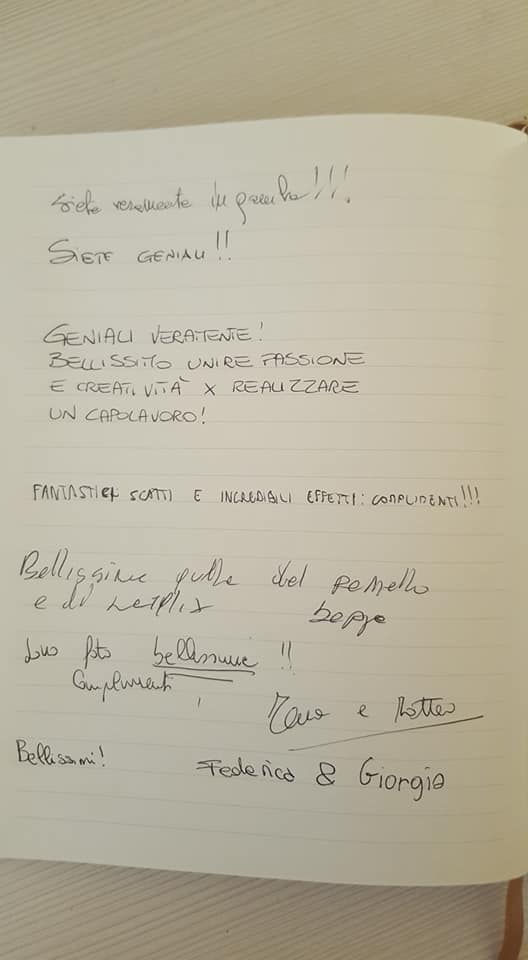 Siete veramente in gamba!!!.
SIETE GENIALI!!
GENIALI VERAMENTE!
BELLISSIMO UNIRE PASSIONE
E CREATIVITÀ X REALIZZARE
UN CAPOLAVORO!
FANTASTICI SCATTI E INCREDIBILI EFFETTI: COMPLIMENTI!!!
Bellissime quelle del pennello
e di netflix
Beppe
sono foto bellissime !!
Complimenti
e Matteo
Bellissimi!
Federico & Giorgia